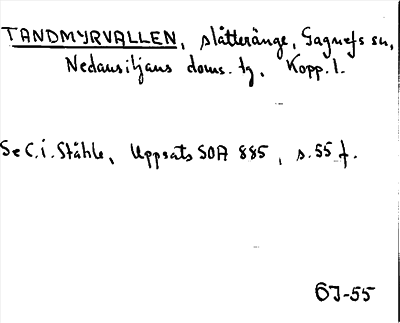 TANDMYRVALLEN, slåtteränge, Gagnefs sn,
Nedansiljans doms. tg, Kopp. l.
Se C.i. Ståhle, Uppsats SOA 885, s. 55 f.
6J-55